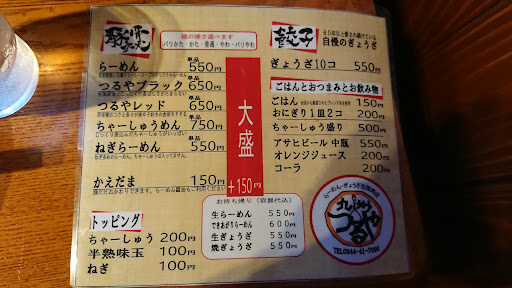 豚骨ラーメン
麺の硬さ選べます
バリかた・かた・普通・やわ・バリやわ
らーめん 単品 550円
つるやブラック 単品 650円
つるやレッド 単品 650円
ちゃーしゅうめん 単品 750円
ねぎらーめん 単品 550円
かえだま 150円
大盛
+150円
トッピング
ちゃーしゅう 200円
半熟味玉 100円
ねぎ 100円
餃子
自慢のぎょうざ
ぎょうざ10コ 550円
ごはんとおつまみとお飲み物
ごはん 150円
おにぎり1皿2コ 200円
ちゃーしゅう盛り 500円
アサヒビール 中瓶 550円
オレンジジュース 200円
コーラ 200円
お持ち帰り(容器代込)
生らーめん 550円
できあがりらーめん 600円
生ぎょうざ 550円
焼ぎょうざ 550円
らーめん・ぎょうざ
九州
つるや